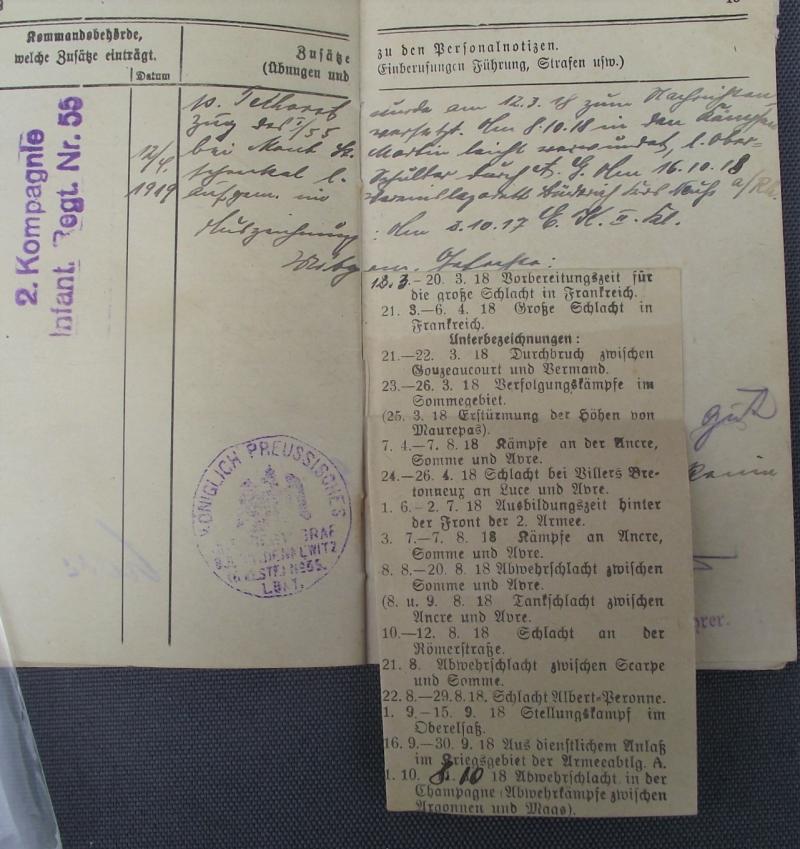 Kommandobehörde,
welche Zusätze einträgt.
Datum
Zusätze
(Übungen und
zu den Personalnotizen.
Einberufungen Führung, Strafen usw.)
2. Kompagnie
Infant. Regt. Nr. 55
12/4.
1919
zug des I/55
bei Mont St.
schenkel l.
aufgen. im
Auszeichnung
wurde am 12.3.18 zum Nachrichten
versetzt. Am 8.10.18 in den Kämpfen
Martin leicht verwundet, l. Ober-
durch A. G. Am 16.10.18
: Am 3.10.17 E. K. II. Kl.
12.3.– 20. 3. 18 Vorbereitungszeit für
die große Schlacht in Frankreich.
21. 3.—6. 4. 18 Große Schlacht in
Frankreich.
Unterbezeichnungen:
21.—22. 3. 18 Durchbruch zwischen
Gouzeaucourt und Vermand.
23.—26. 3. 18 Verfolgungskämpfe im
Sommegebiet.
(25. 3. 18 Erstürmung der Höhen von
Maurepas).
7. 4.—7. 8. 18 Kämpfe an der Ancre,
Somme und Avre.
24.—26. 4. 18 Schlacht bei Villers Bre-
tonneux an Luce und Avre.
1. 6.—2. 7. 18 Ausbildungszeit hinter
der Front der 2. Armee.
3. 7.—7. 8. 18 Kämpfe an Ancre,
Somme und Avre.
8. 8.—20. 8. 18 Abwehrschlacht zwischen
Somme und Avre.
(8. u. 9. 8. 18 Tankschlacht zwischen
Ancre und Avre.
10.—12. 8. 18 Schlacht an der
Römerstraße.
21. 8. Abwehrschlacht zwischen Scarpe
und Somme.
22. 8.—29.8.18. Schlacht Albert-Peronne.
1. 9.—15. 9. 18 Stellungskampf im
Oberelsaß.
16. 9.—30. 9. 18 Aus dienstlichem Anlaß
im Kriegsgebiet der Armeeabtlg. A.
1. 10. 8.10 18 Abwehrschlacht in der
Champagne (Abwehrkämpfe zwischen
Argonnen und Maas).
KÖNIGLICH PREUSSISCHES
GRAF
No 55.
I. BAT.
hrer.